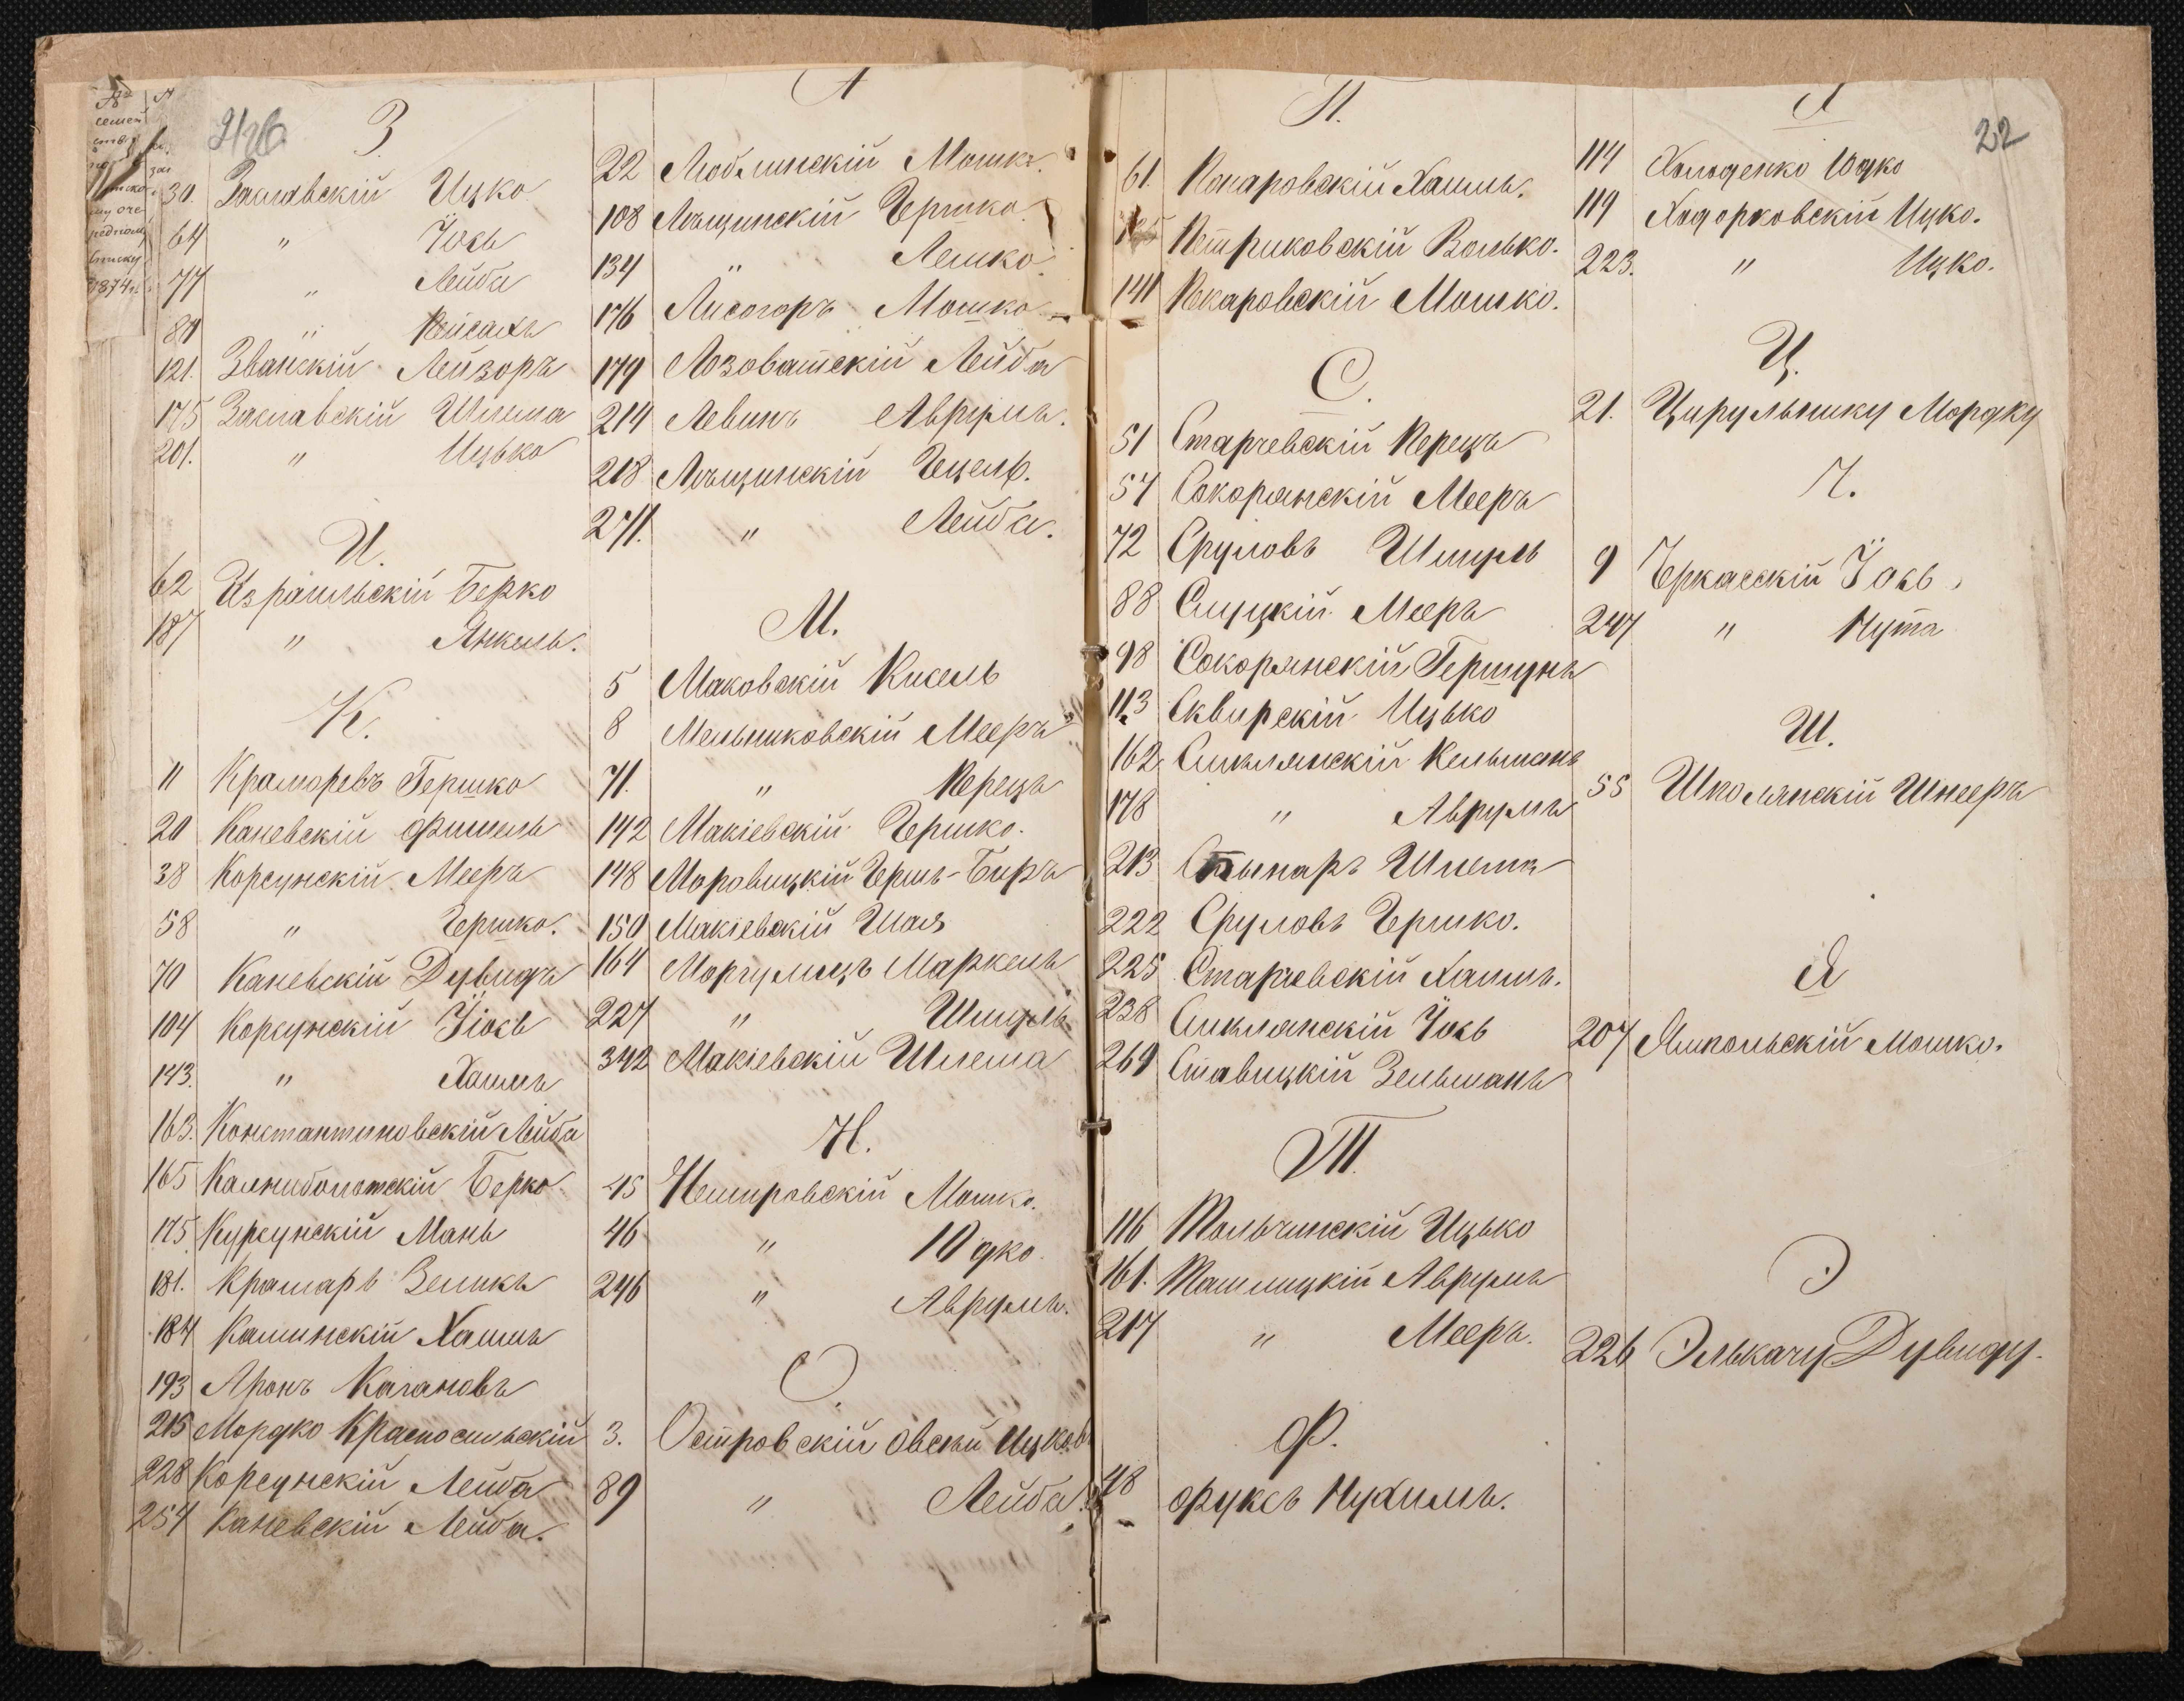 З.
30. Заславскій Ицко
64 " Іось
77 " Лейба
80 " Пейсахъ
121. Званскій Лейзоръ
175 Заславскій Шлема
201. " Ицько
И.
62 Израильскій Берко
187 " Янкель.
К.
11 Краморевъ Гершко
20 Каневскій Фишель
38 Корсунскій Мееръ
58 " Гершко.
70 Каневскій Дувидъ
104 Корсунскій Іось
143. " Хаимъ
163. Константиновскій Лейба
165 Калниболотскій Берко
175 Курсунскій Мань
181. Крамарь Зеликъ
184 Каминскій Хаимъ
193 Аронъ Кагановъ
215 Мордко Красносельскій
228 Корсунскій Лейба
254 Каневскій Лейба.
Л
22 Люблинскій Мошко.
108 Лящинскій Гершко.
134 " Лешко.
176 Лисогоръ Мошко
179 Лозоватскій Лейба
214 Левинъ Аврумъ.
218 Лящинскій Гецель.
271. " Лейба.
М.
5 Маковскій Кисель
8 Мельниковскій Мееръ
71. " Перецъ
142 Макіевскій Гершко.
148 Моровицкій Герш-Беръ
150 Макіевскій Шая
164 Моргулисъ Маркель
227 " Шмуль
342 Макіевскій Шлема
Н.
45 Немировскій Мошко.
46 " Юдко.
246 " Аврумъ.
О.
3. Островскій Овсѣй Ицков
89 " Лейба.
П.
61. Понаровскій Хаимъ.
Петриковскій Волько.
141 Пекаровскій Мошко.
С.
51 Старчевскій Перецъ
57 Сокорянскій Мееръ
72 Сруловъ Шмуль
88 Слуцкій Мееръ
98 Сокорянскій Гершунъ
113 Сквирскій Ицько
162. Смилянскій Кельманъ
178 " Аврумъ
213 Шлема
222 Сруловъ Гершко.
225 Старчевскій Хаимъ.
238 Смилянскій Іось
269 Ставицкій Зельманъ
Т.
116 Тольчинскій Ицько
161. Ташлицкій Аврумъ
217 " Мееръ.
Ф.
48 Фуксъ Нухимъ.
Х
22
114 Хольденко Юдко
119 Ходорковскій Ицко.
223. " Ицко.
Ц.
21. Цирульнику Мордку
Ч.
9 Черкасскій Іось
247 " Нута
Ш.
55 Шполянскій Шнееръ
Я
207 Ямпольскій Мошко.
Э
226 Элькачу Дувиду.